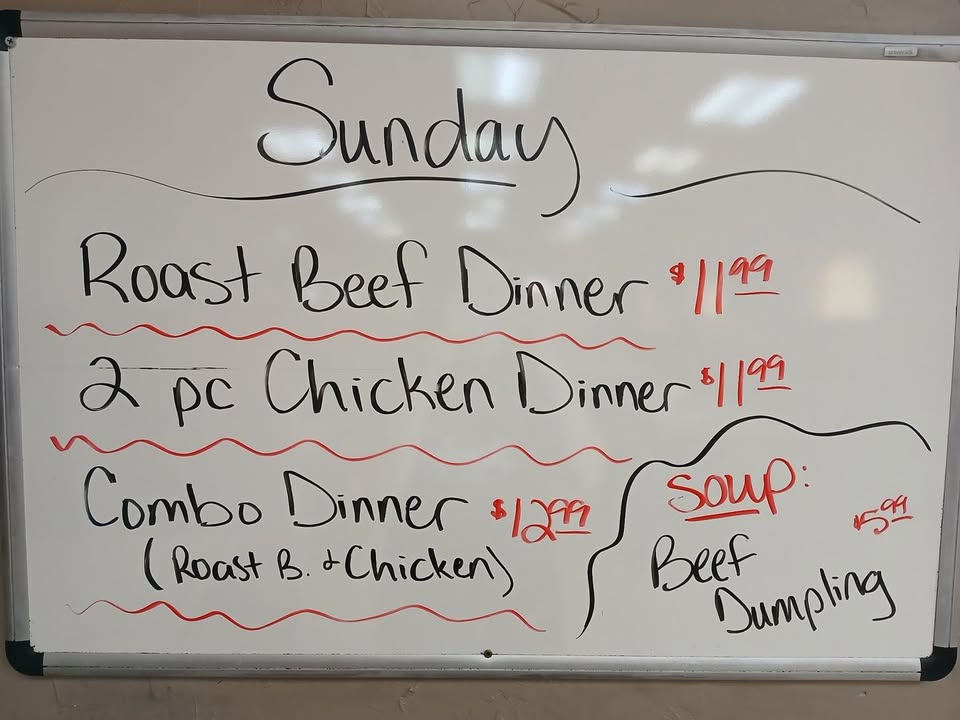 Sunday
Roast Beef Dinner $11.99
2 pc Chicken Dinner $11.99
Combo Dinner $12.99
(Roast B. + Chicken)
Soup:
$5.99
Beef
Dumpling